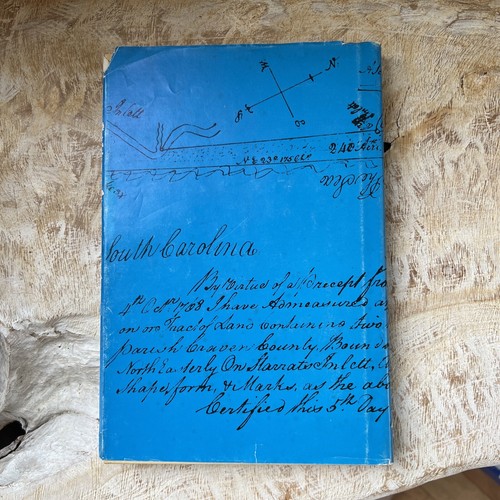 Inlett
N
240 Acre
N E 23° 175 Ch
The Sea
South Carolina
By Virtue of a Precept fro
4th Octr 1788 I have Admeasured a
on or Tract of Land containing two
parish Craven County, Bound
North Easterly On Starrats Inlett,
Shape, form, & Marks, as the abo
Certified this 5th Day